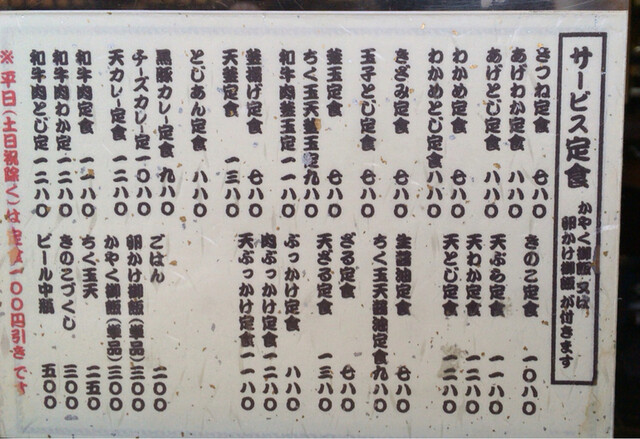 サービス定食
かやく御飯又は
卵かけ御飯が付きます
きつね定食 七八〇
あげわか定食 八八〇
あげとじ定食 八八〇
わかめ定食 七八〇
わかめとじ定食 八八〇
きざみ定食 七八〇
玉子とじ定食 七八〇
釜玉定食 七八〇
ちく玉天釜玉定 九八〇
和牛肉釜玉定 一一八〇
釜揚げ定食 七八〇
天釜定食 一三八〇
とじあん定食 八八〇
黒豚カレー定食 九八〇
チーズカレー定 一〇八〇
天カレー定食 一二八〇
和牛肉定食 一一八〇
和牛肉わか定 一二八〇
和牛肉とじ定 一二八〇
きのこ定食 一〇八〇
天ぷら定食 一一八〇
天わか定食 一二八〇
天とじ定食 一二八〇
生醤油定食 七八〇
ちく玉天醤油定食 九八〇
ざる定食 七八〇
天ざる定食 一三八〇
ぶっかけ定食 八八〇
肉ぶっかけ定食 一二八〇
天ぶっかけ定食 一一八〇
ごはん 二〇〇
卵かけ御飯(単品) 三〇〇
かやく御飯(単品) 三〇〇
ちく玉天 二五〇
きのこづくし 三〇〇
ビール中瓶 五〇〇
※平日(土日祝除く)は定食一〇〇円引きです